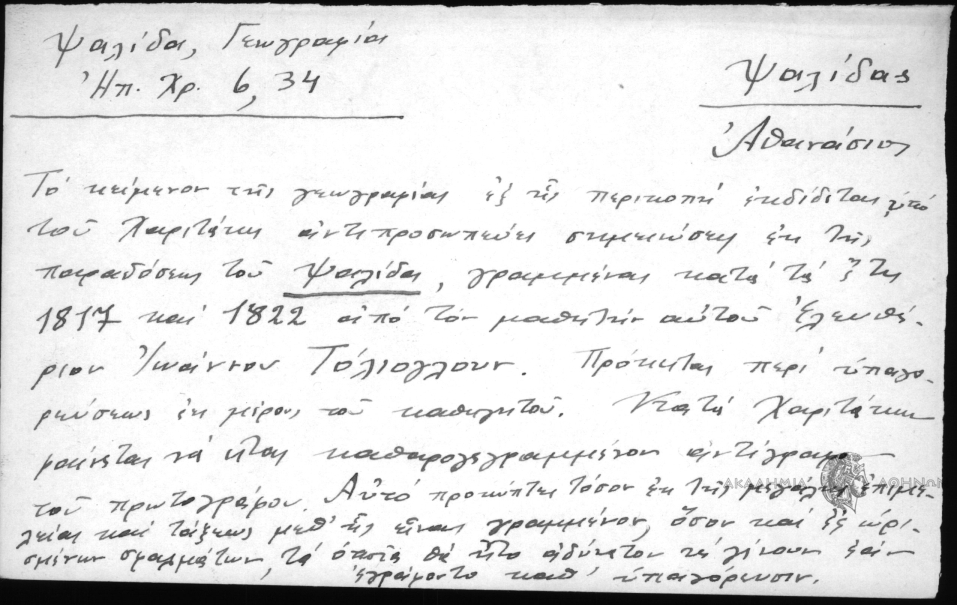 Ψαλίδα, Γεωγραφία
Ἠπ. Χρ. 6, 34
Ψαλίδας
Ἀθανάσιος
Τό κείμενον τῆς γεωγραφίας ἐξ ἧς περικοπή ἐκδίδεται ὑπό
τοῦ Χαριτάκη ἀντιπροσωπεύει σημειώσεις ἐκ τῆς
παραδόσεως τοῦ Ψαλίδα, γραμμένας κατά τά ἔτη
1817 καί 1822 ἀπό τόν μαθητήν αὐτοῦ Ἐλευθέ-
ριον Ἰωάννου Τόλιογλουν. Πρόκειται περί ὑπαγο-
ρεύσεως ἐκ μέρους τοῦ καθηγητοῦ. Κατά Χαριτάκην
φαίνεται νά εἶναι καθαρογεγραμμένον ἀντίγραφον
τοῦ πρωτογράφου. Αὐτό προκύπτει τόσον ἐκ τῆς μεγάλης ἐπιμε-
λείας καί τάξεως μεθ' ἧς εἶναι γραμμένον, ὅσον καί ἐξ ὡρι-
σμένων σφαλμάτων, τά ὁποῖα θά ἦτο ἀδύνατον νά γίνουν ἐάν
ἐγράφοντο καθ' ὑπαγόρευσιν.
ΑΚΑΔΗΜΙΑ ΑΘΗΝΩΝ